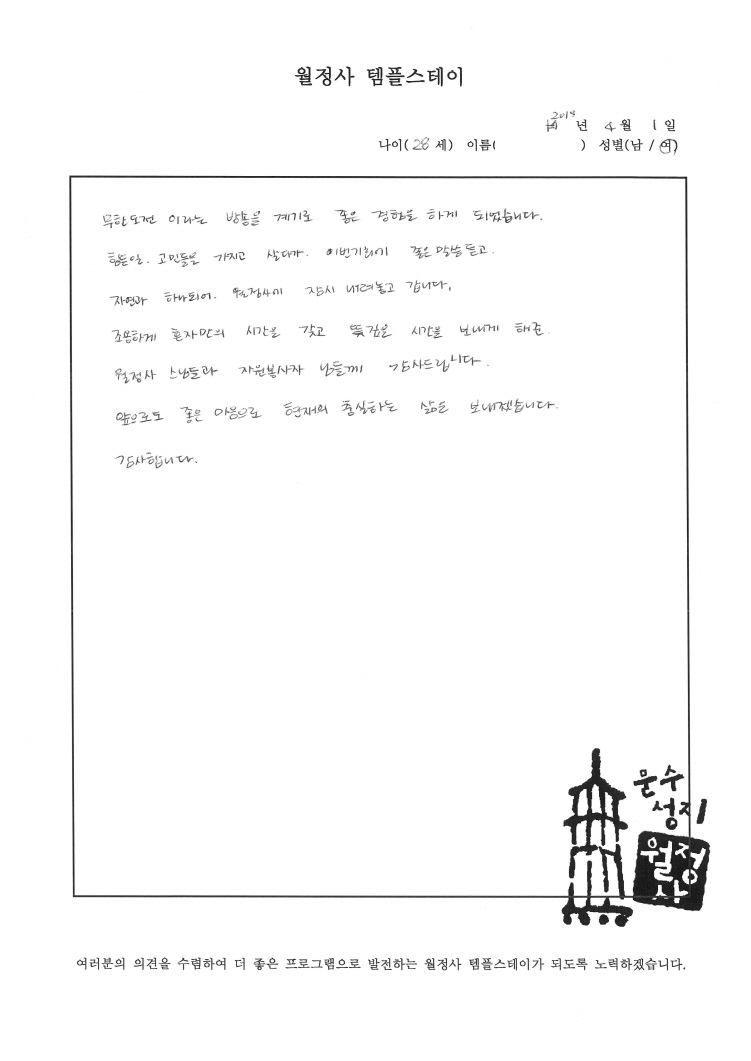 월정사 템플스테이
2018년 4월 1일
나이(28세) 이름( ) 성별(남 / 여)
무한도전 이라는 방송을 계기로 좋은 경험을 하게 되었습니다.
힘든일. 고민들을 가지고 살다가. 이번기회에 좋은말씀듣고.
자연과 하나되어. 월정사에 잠시 내려놓고 갑니다.
조용하게 혼자만의 시간을 갖고 뜻깊은 시간을 보내게 해준.
월정사 스님들과 자원봉사자 님들께 감사드립니다.
앞으로도 좋은 마음으로 현재의 충실하는 삶을 보내겠습니다.
감사합니다.
문수
성지
월정
사
여러분의 의견을 수렴하여 더 좋은 프로그램으로 발전하는 월정사 템플스테이가 되도록 노력하겠습니다.